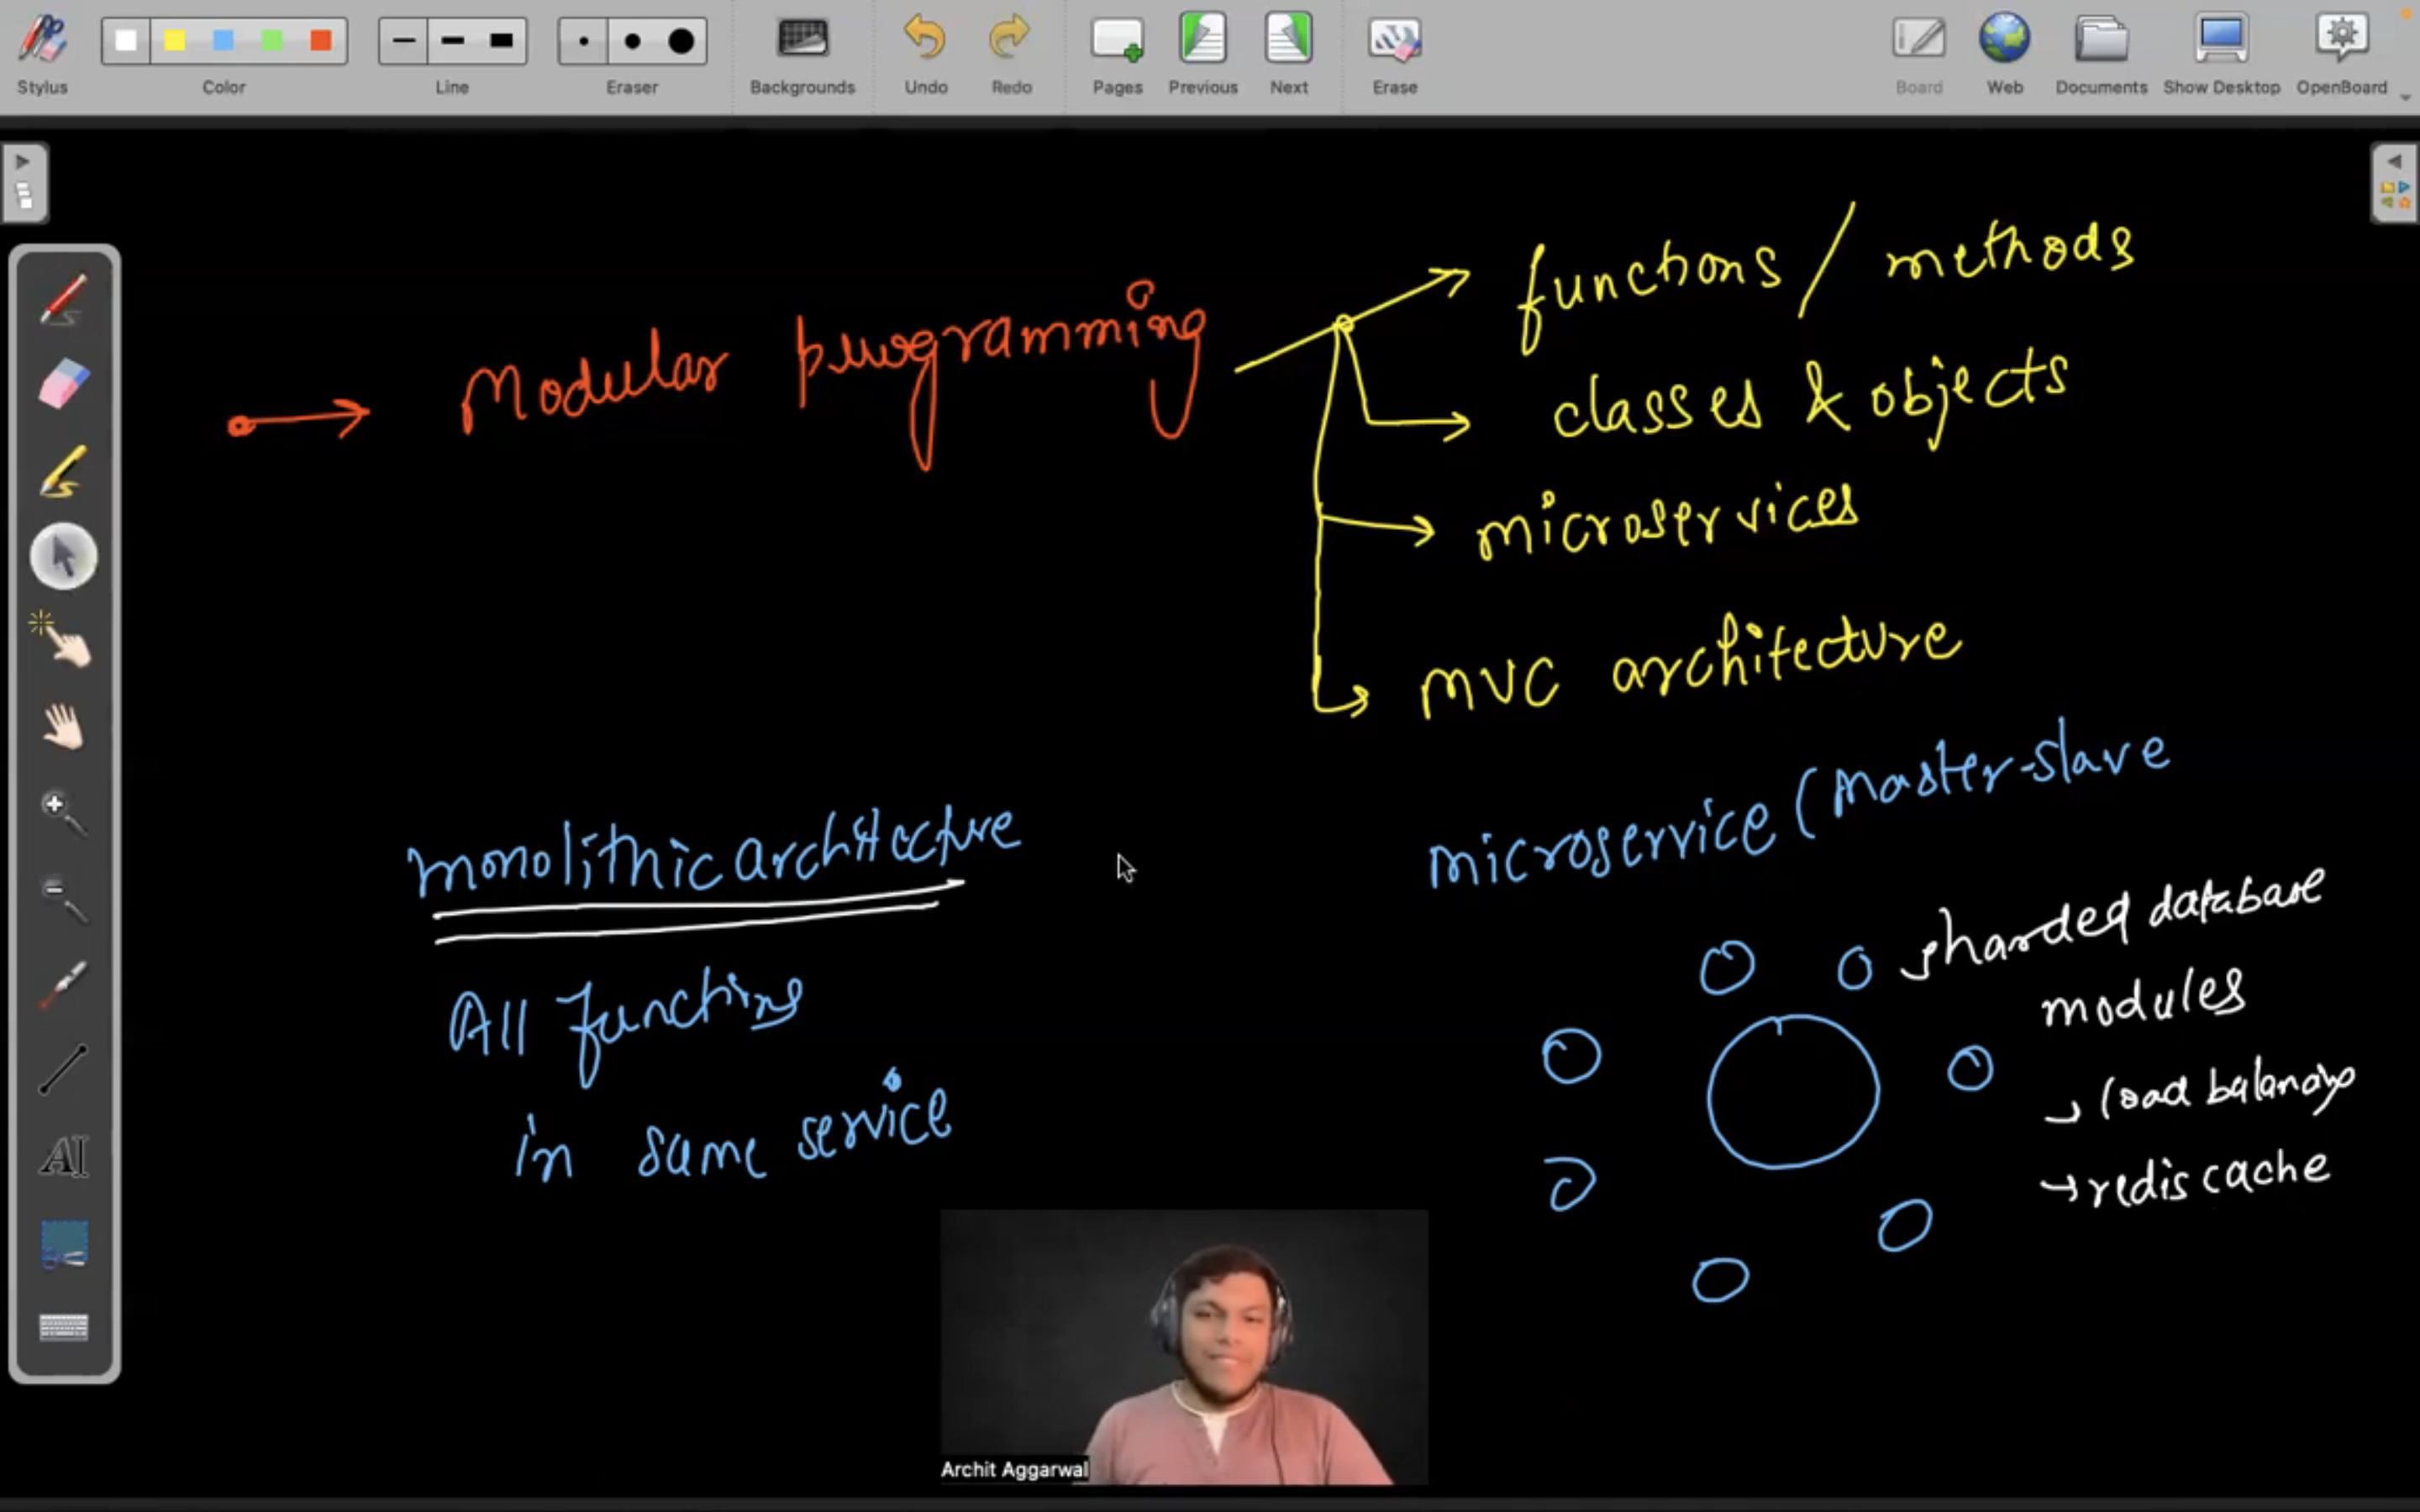 Stylus
Color
Line
Eraser
Backgrounds
Undo
Redo
Pages
Previous
Next
Erase
Board
Web
Documents
Show Desktop
OpenBoard
Modular programming
functions / methods
classes & objects
microservices
MVC architecture
monolithic architecture
All functions
in same service
microservice (Master-slave
sharded database
modules
load balancing
redis cache
AI
Archit Aggarwal